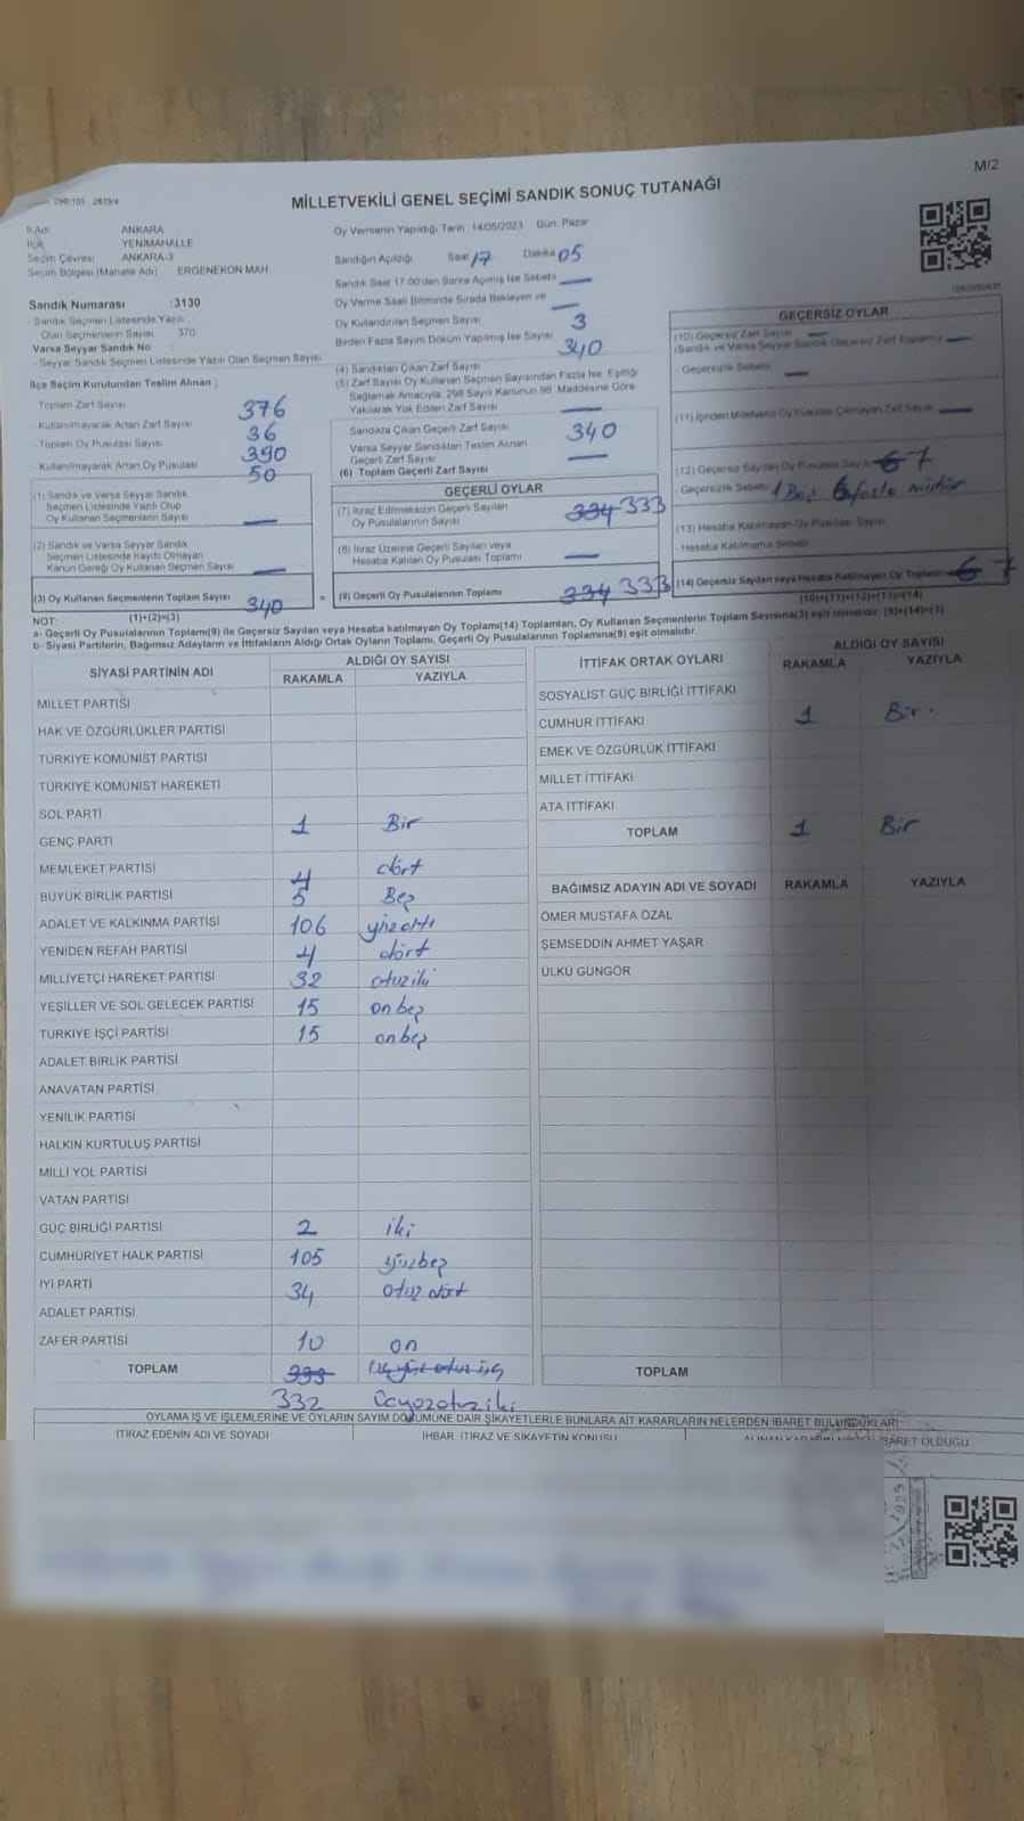 M/2
MİLLETVEKİLİ GENEL SEÇİMİ SANDIK SONUÇ TUTANAĞI
İl Adı ANKARA
İlçe YENİMAHALLE
Seçim Çevresi ANKARA-3
Seçim Bölgesi (Mahalle Adı) ERGENEKON MAH
Sandık Numarası :3130
Sandık Seçmen Listesinde Yazılı
Olan Seçmenlerin Sayısı 370
Varsa Seyyar Sandık No
Seyyar Sandık Seçmen Listesinde Yazılı Olan Seçmen Sayısı
İlçe Seçim Kurulundan Teslim Alınan ;
Toplam Zarf Sayısı 376
Kullanılmayarak Artan Zarf Sayısı 36
Toplam Oy Pusulası Sayısı 390
Kullanılmayarak Artan Oy Pusulası 50
(1) Sandık ve Varsa Seyyar Sandık
Seçmen Listesinde Yazılı Olup
Oy Kullanan Seçmenlerin Sayısı
(2) Sandık ve Varsa Seyyar Sandık
Seçmen Listesinde Kaydı Olmayan
Kanun Gereği Oy Kullanan Seçmen Sayısı
(3) Oy Kullanan Seçmenlerin Toplam Sayısı 340
(1)+(2)=(3)
Oy Vermenin Yapıldığı Tarih 14/05/2023 Gün: Pazar
Sandığın Açıldığı Saat 17 Dakika 05
Sandık Saat 17.00'den Sonra Açılmış İse Sebebi
Oy Verme Saati Bitiminde Sırada Bekleyen ve
Oy Kullandırılan Seçmen Sayısı 3
Birden Fazla Sayım Döküm Yapılmış İse Sayısı
(4) Sandıktan Çıkan Zarf Sayısı 340
(5) Zarf Sayısı Oy Kullanan Seçmen Sayısından Fazla İse, Eşitliği
Sağlamak Amacıyla, 298 Sayılı Kanunun 98. Maddesine Göre
Yakılarak Yok Edilen Zarf Sayısı
Sandıkta Çıkan Geçerli Zarf Sayısı 340
Varsa Seyyar Sandıktan Teslim Alınan
Geçerli Zarf Sayısı
(6) Toplam Geçerli Zarf Sayısı
GEÇERLİ OYLAR
(7) İtiraz Edilmeksizin Geçerli Sayılan
Oy Pusulalarının Sayısı 334 333
(8) İtiraz Üzerine Geçerli Sayılan veya
Hesaba Katılan Oy Pusulası Toplamı
= (9) Geçerli Oy Pusulalarının Toplamı 334 333
GEÇERSİZ OYLAR
(10) Geçersiz Zarf Sayısı
(Sandık ve Varsa Seyyar Sandık Geçersiz Zarf Toplamı)
Geçersizlik Sebebi
(12) Geçersiz Sayılan Oy Pusulası Sayısı 6 7
Geçersizlik Sebebi 1 Boş 6 fazla mühür
(13) Hesaba Katılmayan Oy Pusulası Sayısı
Hesaba Katılmama Sebebi
(14) Geçersiz Sayılan veya Hesaba Katılmayan Oy Toplamı 6 7
(10)+(11)+(12)+(13)=(14)
NOT:
a- Geçerli Oy Pusulalarının Toplamı(9) ile Geçersiz Sayılan veya Hesaba katılmayan Oy Toplamı(14) Toplamları, Oy Kullanan Seçmenlerin Toplam Sayısına(3) eşit olmalıdır. (9)+(14)=(3)
b- Siyasi Partilerin, Bağımsız Adayların ve İttifakların Aldığı Ortak Oyların Toplamı, Geçerli Oy Pusulalarının Toplamına(9) eşit olmalıdır.
SİYASİ PARTİNİN ADI ALDIĞI OY SAYISI
RAKAMLA YAZIYLA
MİLLET PARTİSİ
HAK VE ÖZGÜRLÜKLER PARTİSİ
TÜRKİYE KOMÜNİST PARTİSİ
TÜRKİYE KOMÜNİST HAREKETİ
SOL PARTİ
GENÇ PARTİ 1 Bir
MEMLEKET PARTİSİ 4 dört
BÜYÜK BİRLİK PARTİSİ 5 Beş
ADALET VE KALKINMA PARTİSİ 106 yüzaltı
YENİDEN REFAH PARTİSİ 4 dört
MİLLİYETÇİ HAREKET PARTİSİ 32 otuziki
YEŞİLLER VE SOL GELECEK PARTİSİ 15 onbeş
TÜRKİYE İŞÇİ PARTİSİ 15 onbeş
ADALET BİRLİK PARTİSİ
ANAVATAN PARTİSİ
YENİLİK PARTİSİ
HALKIN KURTULUŞ PARTİSİ
MİLLİ YOL PARTİSİ
VATAN PARTİSİ
GÜÇ BİRLİĞİ PARTİSİ 2 iki
CUMHURİYET HALK PARTİSİ 105 yüzbeş
İYİ PARTİ 34 otuz dört
ADALET PARTİSİ
ZAFER PARTİSİ 10 on
TOPLAM 333 üç yüz otuz üç
332 üçyüzotuziki
İTTİFAK ORTAK OYLARI ALDIĞI OY SAYISI
RAKAMLA YAZIYLA
SOSYALİST GÜÇ BİRLİĞİ İTTİFAKI
CUMHUR İTTİFAKI 1 Bir.
EMEK VE ÖZGÜRLÜK İTTİFAKI
MİLLET İTTİFAKI
ATA İTTİFAKI
TOPLAM 1 Bir
BAĞIMSIZ ADAYIN ADI VE SOYADI RAKAMLA YAZIYLA
ÖMER MUSTAFA ÖZAL
ŞEMSEDDİN AHMET YAŞAR
ÜLKÜ GÜNGÖR
TOPLAM
OYLAMA İŞ VE İŞLEMLERİNE VE OYLARIN SAYIM DÖKÜMÜNE DAİR ŞİKAYETLERLE BUNLARA AİT KARARLARIN NELERDEN İBARET BULUNDUKLARI
İTİRAZ EDENİN ADI VE SOYADI İHBAR, İTİRAZ VE ŞİKAYETİN KONUSU